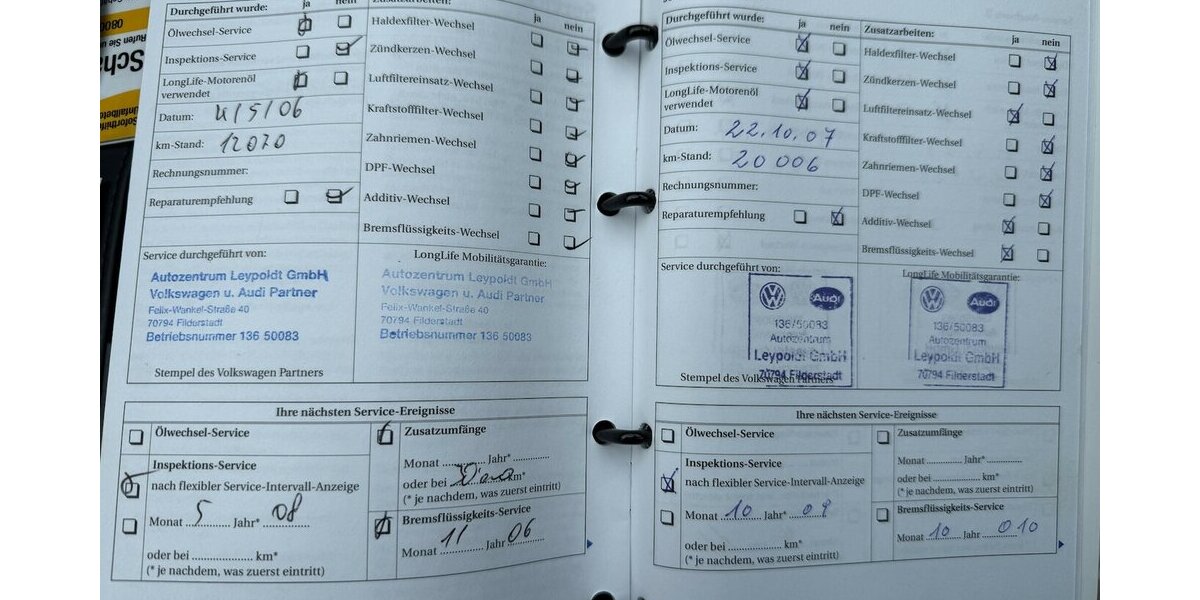 0800
Rufen Sie un
Scha
Soforthilfe
Unfallbetei
Durchgeführt wurde:
ja
nein
Ölwechsel-Service
Inspektions-Service
LongLife-Motorenöl
verwendet
Datum: 4/5/06
km-Stand: 12070
Rechnungsnummer:
Reparaturempfehlung
Zusatzarbeiten:
ja
nein
Haldexfilter-Wechsel
Zündkerzen-Wechsel
Luftfiltereinsatz-Wechsel
Kraftstofffilter-Wechsel
Zahnriemen-Wechsel
DPF-Wechsel
Additiv-Wechsel
Bremsflüssigkeits-Wechsel
Service durchgeführt von:
Autozentrum Leypoldt GmbH
Volkswagen u. Audi Partner
Felix-Wankel-Straße 40
70794 Filderstadt
Betriebsnummer 136 50083
Stempel des Volkswagen Partners
LongLife Mobilitätsgarantie:
Autozentrum Leypoldt GmbH
Volkswagen u. Audi Partner
Felix-Wankel-Straße 40
70794 Filderstadt
Betriebsnummer 136 50083
Ihre nächsten Service-Ereignisse
Ölwechsel-Service
Inspektions-Service
nach flexibler Service-Intervall-Anzeige
Monat 5 Jahr* 08
oder bei ............ km*
(* je nachdem, was zuerst eintritt)
Zusatzumfänge
Monat ............ Jahr* ............
oder bei km*
(* je nachdem, was zuerst eintritt)
Bremsflüssigkeits-Service
Monat 11 Jahr 06
Durchgeführt wurde:
ja
nein
Ölwechsel-Service
Inspektions-Service
LongLife-Motorenöl
verwendet
Datum: 22.10.07
km-Stand: 20 006
Rechnungsnummer:
Reparaturempfehlung
Zusatzarbeiten:
ja
nein
Haldexfilter-Wechsel
Zündkerzen-Wechsel
Luftfiltereinsatz-Wechsel
Kraftstofffilter-Wechsel
Zahnriemen-Wechsel
DPF-Wechsel
Additiv-Wechsel
Bremsflüssigkeits-Wechsel
Service durchgeführt von:
Audi
136/50083
Autozentrum
Leypoldt GmbH
70794 Filderstadt
Stempel des Volkswagen Partners
LongLife Mobilitätsgarantie:
Audi
136/50083
Autozentrum
Leypoldt GmbH
70794 Filderstadt
Ihre nächsten Service-Ereignisse
Ölwechsel-Service
Inspektions-Service
nach flexibler Service-Intervall-Anzeige
Monat 10 Jahr* 09
oder bei ............ km*
(* je nachdem, was zuerst eintritt)
Zusatzumfänge
Monat ............ Jahr* ............
oder bei ............ km*
(* je nachdem, was zuerst eintritt)
Bremsflüssigkeits-Service
Monat 10 Jahr 010